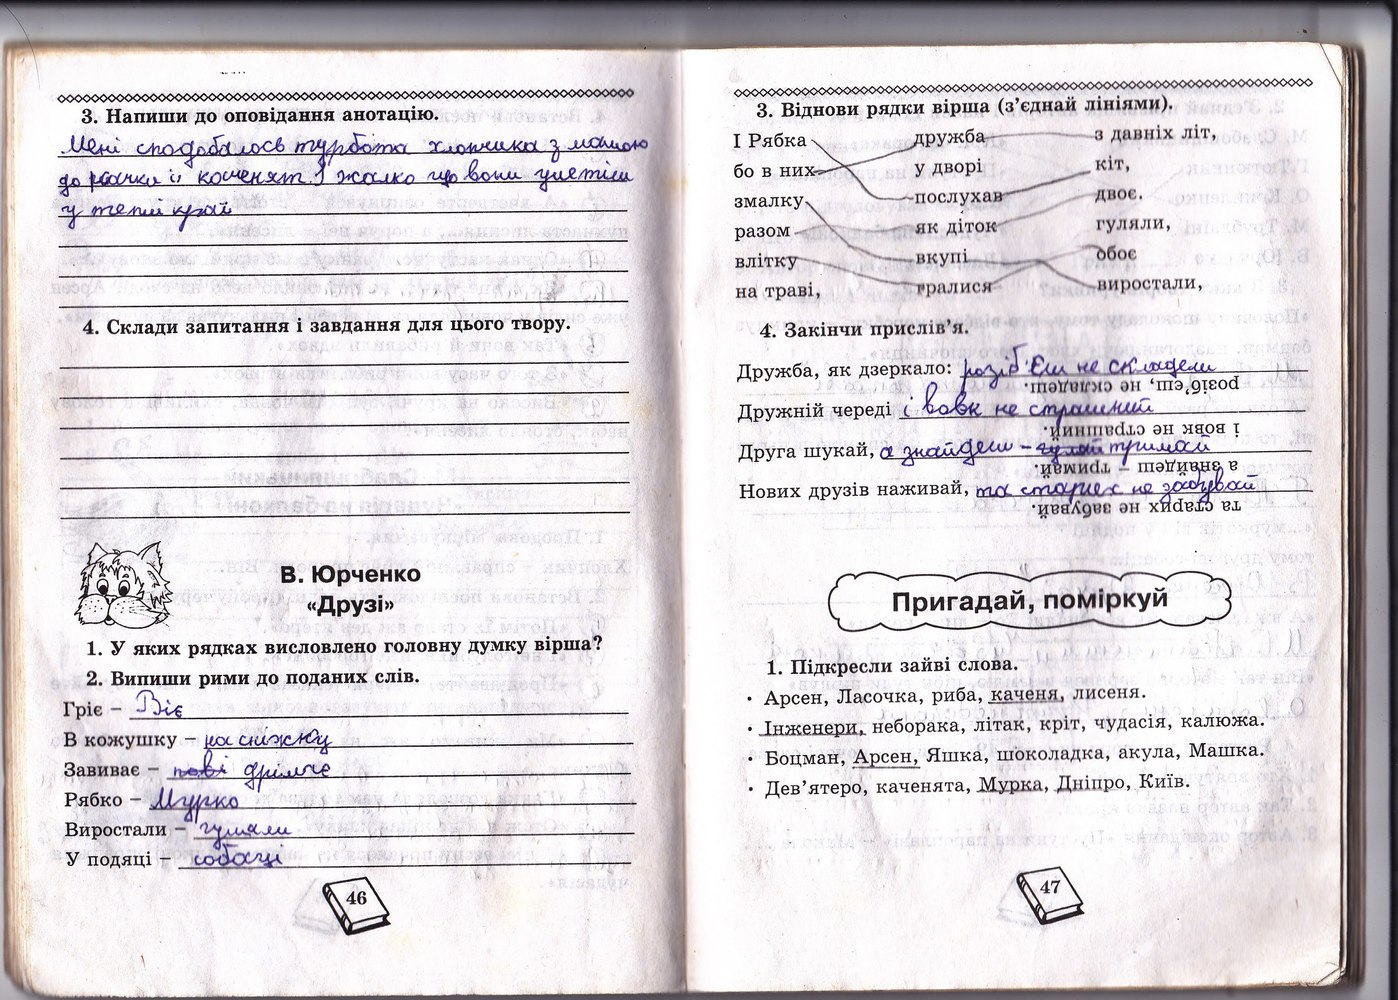 3. Напиши до оповідання анотацію.
Мені сподобалось турбота хлопчика з мамою
до качки і каченят. І жалко що вони улетіли
у теплі край
4. Склади запитання і завдання для цього твору.
В. Юрченко
«Друзі»
1. У яких рядках висловлено головну думку вірша?
2. Випиши рими до поданих слів.
Гріє – Віє
В кожушку – на сніжку
Завиває – дрімає
Рябко – Мурко
Виростали – гуляли
У подяці – собаці
46
3. Віднови рядки вірша (з’єднай лініями).
І Рябка дружба з давніх літ,
бо в них у дворі кіт,
змалку послухав двоє.
разом як діток гуляли,
влітку вкупі обоє
на траві, гралися виростали,
4. Закінчи прислів’я.
Дружба, як дзеркало: розіб'єш не складеш
розіб’єш, не складеш.
Дружній череді і вовк не страшний
і вовк не страшний.
Друга шукай, а знайдеш – гуляй тримай
а знайдеш – тримай.
Нових друзів наживай, та старих не забувай
та старих не забувай.
Пригадай, поміркуй
1. Підкресли зайві слова.
• Арсен, Ласочка, риба, каченя, лисеня.
• Інженери, неборака, літак, кріт, чудасія, калюжа.
• Боцман, Арсен, Яшка, шоколадка, акула, Машка.
• Дев’ятеро, каченята, Мурка, Дніпро, Київ.
47